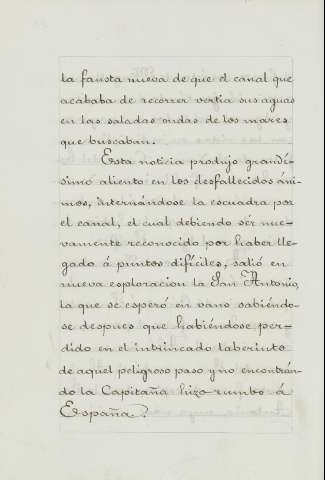 la fausta nueva de que el canal que
acababa de recorrer vertia sus aguas
en las saladas ondas de los mares
que buscaban.
Esta noticia produjo grandí-
simo aliento en los desfallecidos áni-
mos, internándose la escuadra por
el canal, el cual debiendo sér nue-
vamente reconocido por haber lle-
gado á puntos difíciles, salió en
nueva esploracion la San Antonio,
la que se esperó en vano sabiéndo-
se despues que habiéndose per-
dido en el intrincado laberinto
de aquel peligroso paso y no encontrán-
do la Capitaña hizo rumbo á
España.